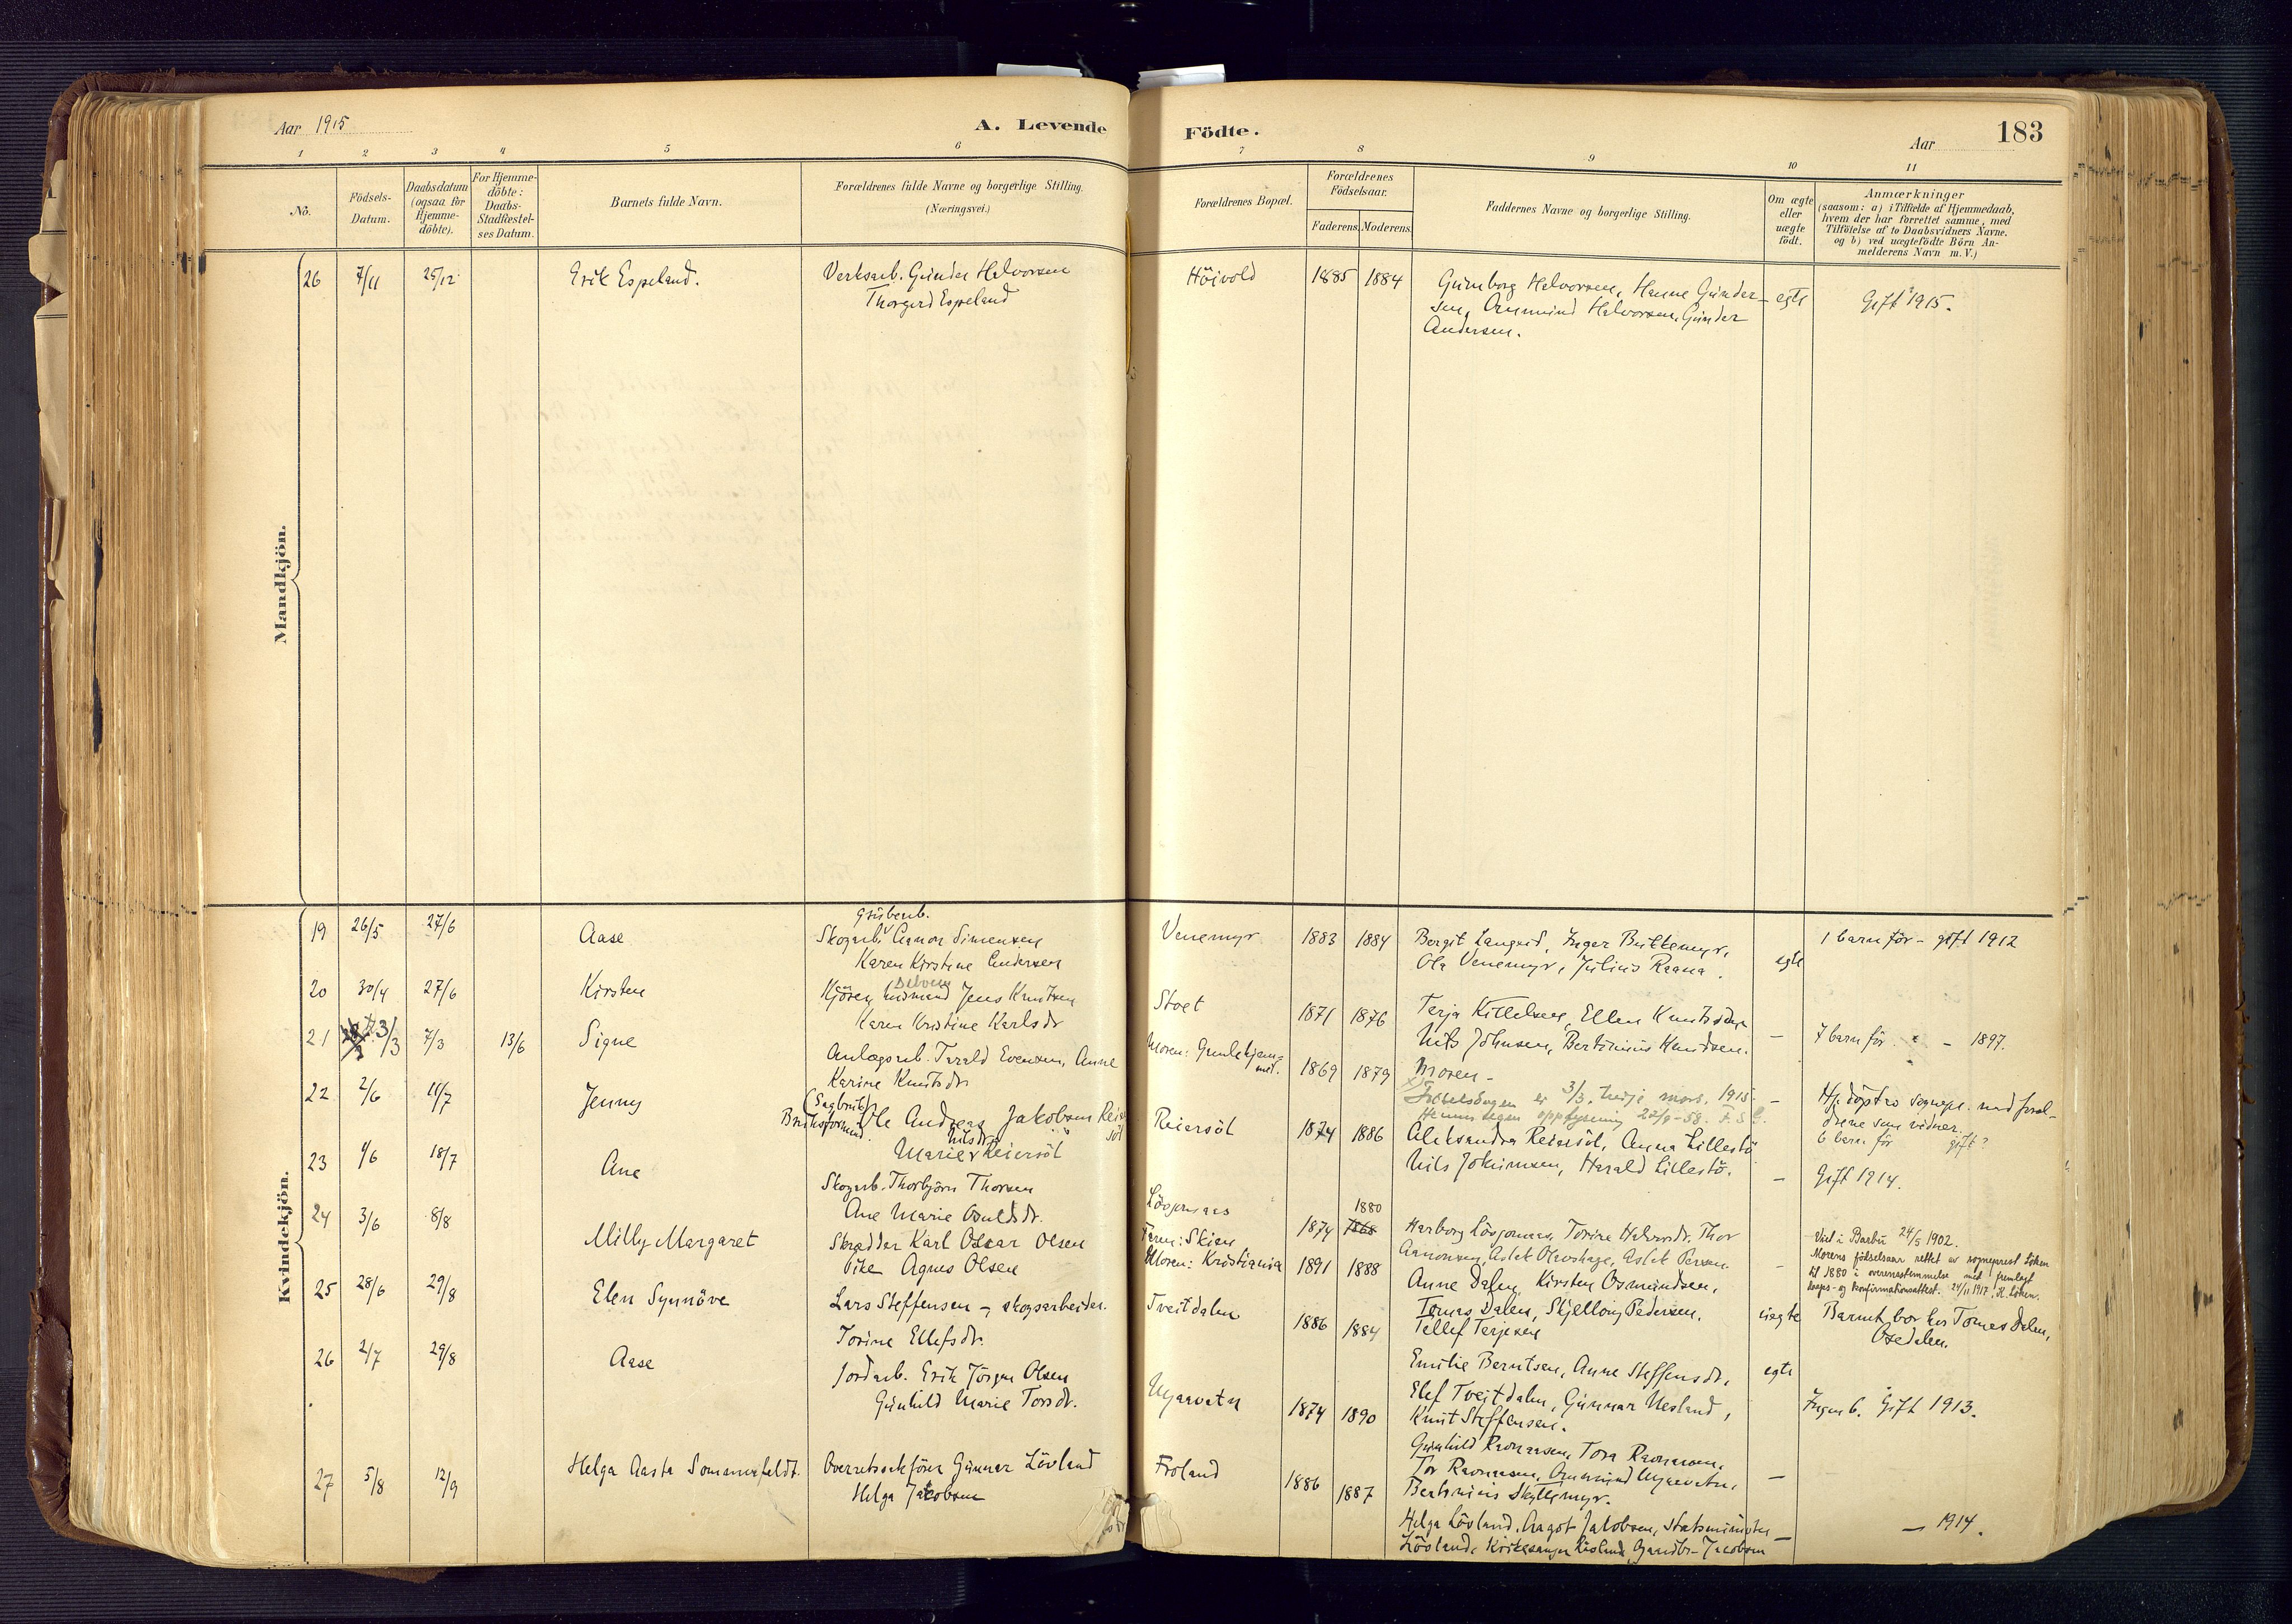 Aar 1915
A. Levende
Födte.
Aar
183
1 2 3 4 5 6 7 8 9 10 11
No.
Födsels-
Datum.
Daabsdatum
(ogsaa for
Hjemme-
döbte).
For Hjemme-
döbte:
Daabs-
Stadfæstel-
ses Datum.
Barnets fulde Navn.
Forældrenes fulde Navne og borgerlige Stilling.
(Næringsvei.)
Forældrenes Bopæl.
Forældrenes
Födselsaar.
Faderens. Moderens.
Faddernes Navne og borgerlige Stilling.
Om ægte
eller
uægte
födt.
Anmærkninger
(saasom: a) i Tilfælde af Hjemmedaab,
hvem der har forrettet samme, med
Tilföielse af to Daabsvidners Navne.
og b) ved uægtefödte Börn An-
melderens Navn m. V.)
Mandkjön.
26 7/11 25/12 Erik Espeland. Verksarb. Gunder Halvorsen
Thorgerd Espeland
Höivold 1885 1884
Gunborg Halvorsen, Hanne Gunder-
sen, Anmund Halvorsen, Gunder
Andersen.
egte
Gift 1915.
Kvindekjön.
19 26/5 27/6 Aase
Grubearb.
Skogarb. Aanon Simensen
Karen Kirstine Andersen
Venemyr 1883 1884
Bergit Langrud, Inger Buttemyr,
Ola Venemyr, Julius Raana.
egte
1 barn för - gift 1912
20 30/4 27/6 Kirsten
Selveier
Kjören husmand Jens Knutsen
Karen Kristine Karlsdr
Stoet 1871 1876
Terje Kittelsen, Ellen Knutsdtr
Nils Johnsen, Bertinius Knudsen.
-
7 barn för. " - 1897.
21 3/3 7/3 13/6 Signe
Anlægsarb. Tarald Evensen, Anne
Karine Knutsdr
Moren: 1869 1879
Moren -
Fødselsdagen er 3/3, tredje mars. 1915.
opplysning 22/9-58.
-
Hj. döpt av sognepr. med foræl-
drene som vidner.
6 barn för gift?
22 2/6 11/7 Jenny
(Sagbruks
Bruksformand. Ole Andreas Jakobsen Reier
söl
Nilsdr
Marie Reiersöl
Reiersöl 1874 1886
Aleksandra Reiersöl, Anna Lillestö
Nils Jokumsen, Harald Lillestö.
-
Gift 1914.
23 1/6 18/7 Ane
Skogarb. Thorbjörn Thorsen
Ane Marie Osuldsdr.
Lövjomaas 1874 1868 1880
Harborg Lövjomaas, Torine Halvorsdr. Thor
Aanonsen, Aslak Olevshage, Aslak Persen
-
Viet i Barbu 24/5 1902.
Morens födselsaar rettet av sogneprest Löken
til 1880 i overensstemmelse med fremlagt
daaps- og konfirmationsattest. 24/11 1917. H. Löken.
24 3/6 8/8 Milly Margaret
Skrædder Karl Oskar Olsen
Pike Agnes Olsen
Faren: Skien
Moren: Kristiania
1891 1888
Anne Dalen, Kirsten Osmundsen,
Tomas Dalen, Skjellong Pedersen,
Tellef Terjesen
uegte
Barnet bor hos Tomas Dalen,
Osedalen.
25 28/6 29/8 Elen Synnöve
Lars Steffensen - skogsarbeider.
Torine Ellefsdr.
Tveitdalen 1886 1884
Emilie Berntsen, Anne Steffensdr,
Elef Tveitdalen, Gunnar Nesland,
Knut Steffensen.
egte
Ingen b. Gift 1913.
26 2/7 29/8 Aase
Jordarb. Erik Jörgen Olsen
Gunhild Marie Torsdr.
Mjaavatn 1874 1890
Gunhild Ravnaasen, Tora Ravnaasen,
Tor Ravnaasen, Anmund Mjaavatn,
Bertinius Skyttemyr.
-
27 5/8 12/9 Helga Aasta Sommerfeldt.
Overretssakförer Gunnar Lövland
Helga Jakobsen
Froland 1886 1887
Helga Lövland, Aagot Jakobsen, statsminister
Lövland, Kirkesanger Gaardbr. Jacobsen
-
- 1914.